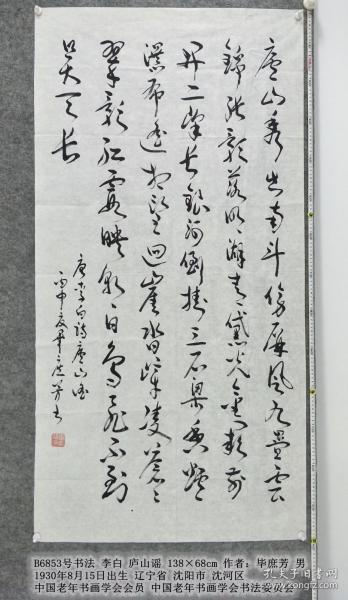 廬山秀出南斗傍屏風九疊雲
錦張影落明湖青黛光金闕前
开二峰长銀河倒掛三石梁香爐
瀑布遙相望迴崖沓嶂凌蒼々
翠影紅霞映朝日鳥飛不到
吴天长
唐李白詩廬山谣
丙申夏畢庶芳书
B6853号书法 李白 庐山谣 138×68cm 作者：毕庶芳 男
1930年8月15日出生 辽宁省 沈阳市 沈河区
中国老年书画学会会员 中国老年书画学会书法委员会